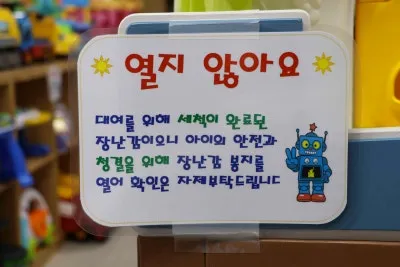 열지 않아요
대여를 위해 세척이 완료된
장난감이오니 아이의 안전과
청결을 위해 장난감 봉지를
열어 확인은 자제부탁드립니다